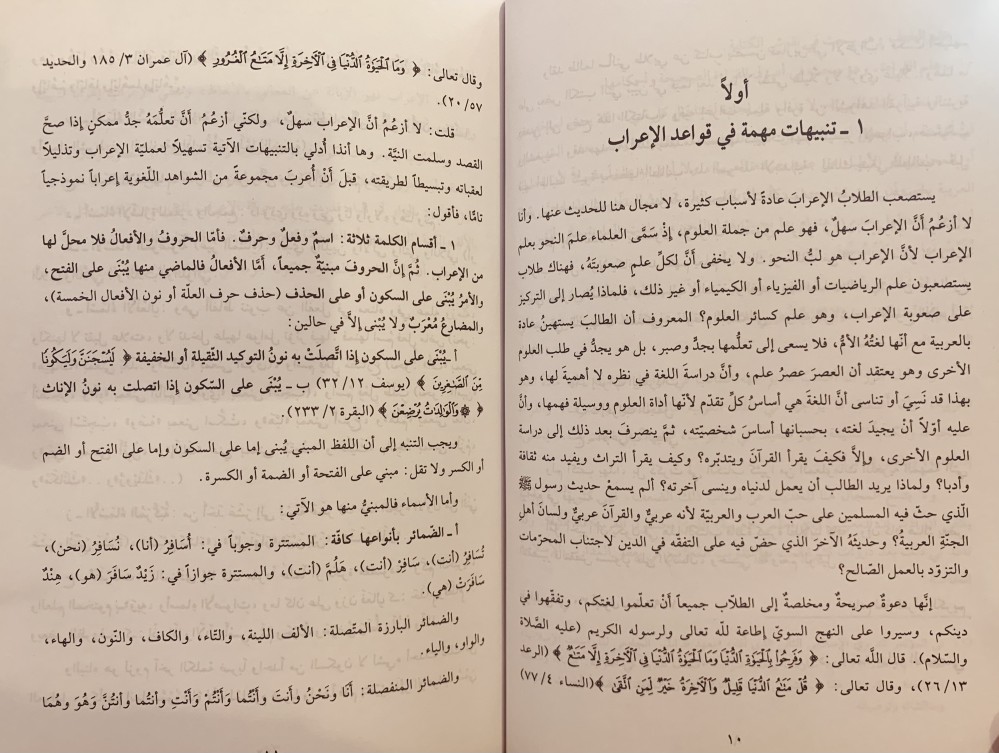 أولاً
١ ـ تنبيهات مهمة في قواعد الإعراب
يستصعب الطلابُ الإعرابَ عادةً لأسباب كثيرة، لا مجال هنا للحديث عنها. وأنا
لا أزعُمُ أنَّ الإعرابَ سهلٌ، فهو علم من جملة العلوم، إذْ سَمَّى العلماء علمَ النحو بعلم
الإعراب لأنَّ الإعراب هو لبُّ النحو. ولا يخفى أنَّ لكلِّ علمٍ صعوبتَهُ، فهناك طلاب
يستصعبون علم الرياضيات أو الفيزياء أو الكيمياء أو غير ذلك، فلماذا يُصار إلى التركيز
على صعوبة الإعراب، وهو علم كسائر العلوم؟ المعروف أن الطالبَ يستهينُ عادة
بالعربية مع أنّها لغتُهُ الأمُّ، فلا يسعى إلى تعلُّمها بجدٍّ وصبر، بل هو يجدُّ في طلب العلوم
الأخرى وهو يعتقد أن العصرَ عصرُ علم، وأنَّ دراسةَ اللغة في نظره لا أهميةَ لها، وهو
بهذا قد نَسِيَ أو تناسى أنَّ اللغةَ هي أساسُ كلِّ تقدّم لأنّها أداة العلوم ووسيلة فهمها، وأنَّ
عليه أوّلاً أنْ يجيدَ لغته، بحسبانها أساسَ شخصيّته، ثمَّ ينصرفَ بعد ذلك إلى دراسة
العلوم الأخرى، وإلاَّ فكيفَ يقرأ القرآنَ ويتدبّره؟ وكيف يقرأ التراث ويفيد منه ثقافة
وأدبا؟ ولماذا يريد الطالب أن يعمل لدنياه وينسى آخرته؟ ألم يسمعْ حديث رسول ﷺ
الّذي حثّ فيه المسلمين على حبّ العرب والعربيّة لأنه عربيٌّ والقرآنَ عربيٌّ ولسانَ أهلِ
الجنّةِ العربيةُ؟ وحديثَهُ الآخرَ الذي حضّ فيه على التفقّه في الدين لاجتناب المحرّمات
والتزوّد بالعمل الصّالح؟
إنَّها دعوةٌ صريحةٌ ومخلصة إلى الطلاّب جميعاً أنْ تعلّموا لغتكم، وتفقّهوا في
دينكم، وسيروا على النهج السويّ إطاعة للّه تعالى ولرسوله الكريم (عليه الصَّلاة
والسّلام). قال اللَّه تعالى: ﴿ وَفَرِحُوا بِالْحَيَوٰةِ الدُّنْيَا وَمَا الْحَيَوٰةُ الدُّنْيَا فِي الْآخِرَةِ إِلَّا مَتَاعٌ ﴾ (الرعد
٢٦/١٣)، وقال تعالى: ﴿ قُلْ مَتَاعُ الدُّنْيَا قَلِيلٌ وَالْآخِرَةُ خَيْرٌ لِمَنِ اتَّقَى ﴾(النساء ٧٧/٤)
١٠
وقال تعالى: ﴿ وَمَا الْحَيَوٰةُ الدُّنْيَا فِي الْآخِرَةِ إِلَّا مَتَاعُ الْغُرُورِ ﴾ (آل عمران ١٨٥/٣ والحديد
٢٠/٥٧).
قلت: لا أزعُمُ أنَّ الإعراب سهلٌ، ولكنّي أزعُمُ أنَّ تعلُّمَهُ جدُّ ممكنٍ إذا صحَّ
القصد وسلمت النيَّة. وها أنذا أُدلي بالتنبيهات الآتية تسهيلاً لعمليّة الإعراب وتذليلاً
لعقباته وتبسيطاً لطريقته، قبلَ أنْ أعربَ مجموعةً من الشواهد اللّغوية إعراباً نموذجياً
تامًّا، فأقول:
١ ـ أقسام الكلمة ثلاثة: اسمٌ وفعلٌ وحرفٌ. فأمّا الحروفُ والأفعالُ فلا محلَّ لها
من الإعراب. ثُمَّ إنَّ الحروفَ مبنيّةٌ جميعاً، أمَّا الأفعالُ فالماضي منها يُبْنَى على الفتح،
والأمرُ يُبْنَى على السكون أو على الحذف (حذف حرف العلّة أو نون الأفعال الخمسة)،
والمضارعُ مُعْرَبٌ ولا يُبْنى إلاَّ في حالين:
أ ـ يُبْنَى على السكون إذا اتَّصلتْ به نونُ التوكيد الثَّقيلة أو الخفيفة ﴿ لَيُسْجَنَنَّ وَلَيَكُونًا
مِنَ الصَّاغِرِينَ ﴾ (يوسف ٣٢/١٢) ب ـ يُبْنَى على السّكون إذا اتصلت به نونُ الإناث
﴿ ۞ وَالْوَالِدَاتُ يُرْضِعْنَ ﴾ (البقرة ٢٣٣/٢).
ويجب التنبه إلى أن اللفظ المبني يُبنى إما على السكون وإما على الفتح أو الضم
أو الكسر ولا تقل: مبني على الفتحة أو الضمة أو الكسرة.
وأما الأسماء فالمبنيُّ منها هو الآتي:
أ ـ الضّمائر بأنواعها كافّة: المستترة وجوباً في: أُسَافِرُ (أنا)، نُسَافِرُ (نحن)،
تُسَافِرُ (أنت)، سَافِرْ (أنت)، هَلُمَّ (أنت)، والمستترة جوازاً في: زَيْدٌ سَافَرَ (هو)، هِنْدٌ
سَافَرَتْ (هي).
والضمائر البارزة المتّصلة: الألف اللينة، والتّاء، والكاف، والنّون، والهاء،
والواو، والياء.
والضمائر المنفصلة: أَنَا وَنَحْنُ وَأَنتَ وَأَنْتُما وَأَنْتُمْ وَأَنْتِ وأنتُما وأنتُنَّ وَهُوَ وَهُمَا